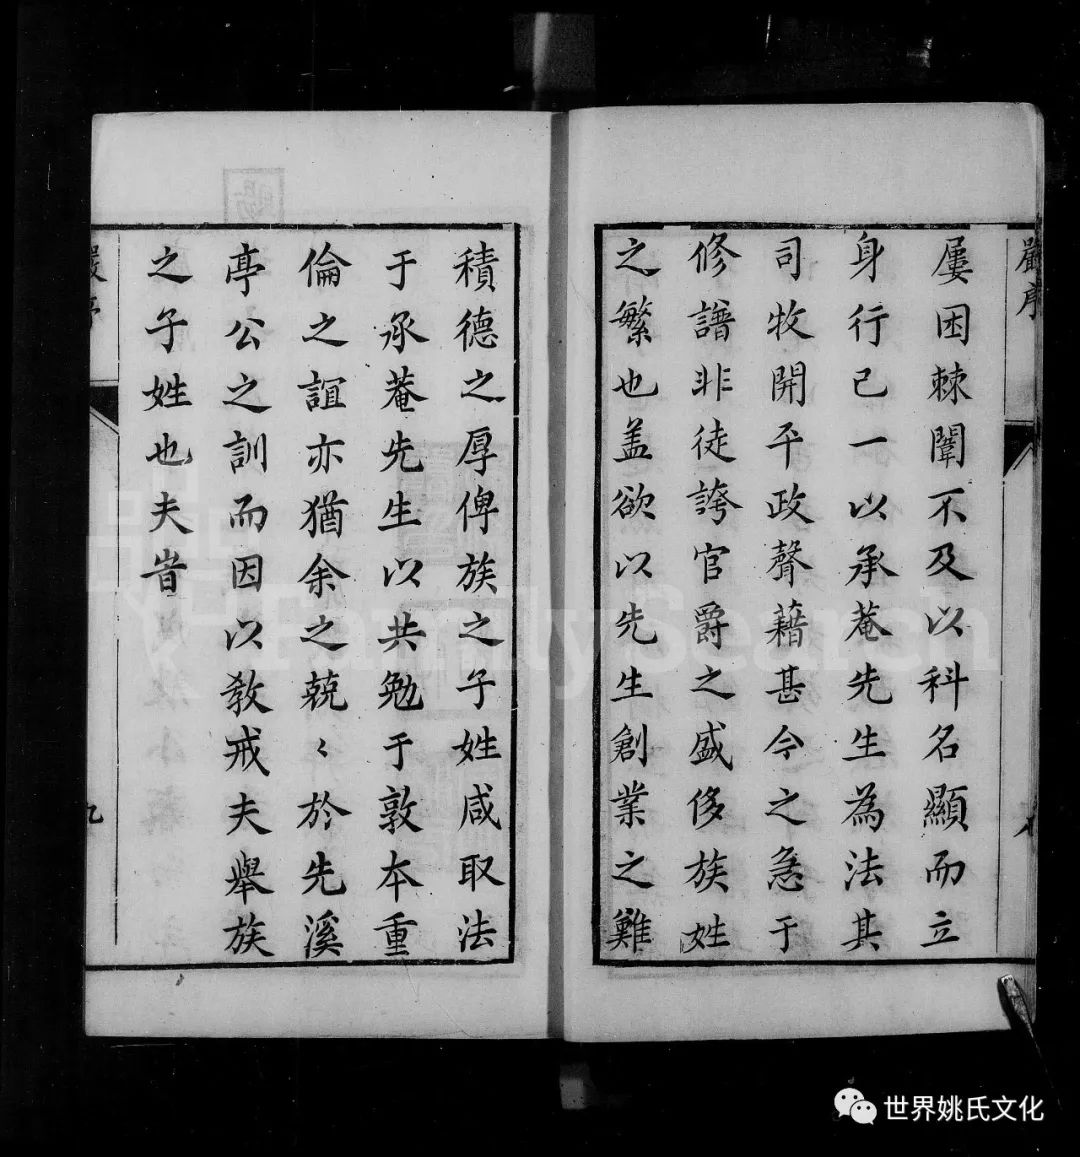 嚴序
屢困棘闈不及以科名顯而立
身行己一以承菴先生為法其
司牧開平政聲藉甚今之急于
修譜非徒誇官爵之盛侈族姓
之繁也盖欲以先生創業之難
積德之厚俾族之子姓咸取法
于承菴先生以共勉于敦本重
倫之誼亦猶余之兢〻於先溪
亭公之訓而因以教戒夫舉族
之子姓也夫旹
九
FamilySearch
世界姚氏文化